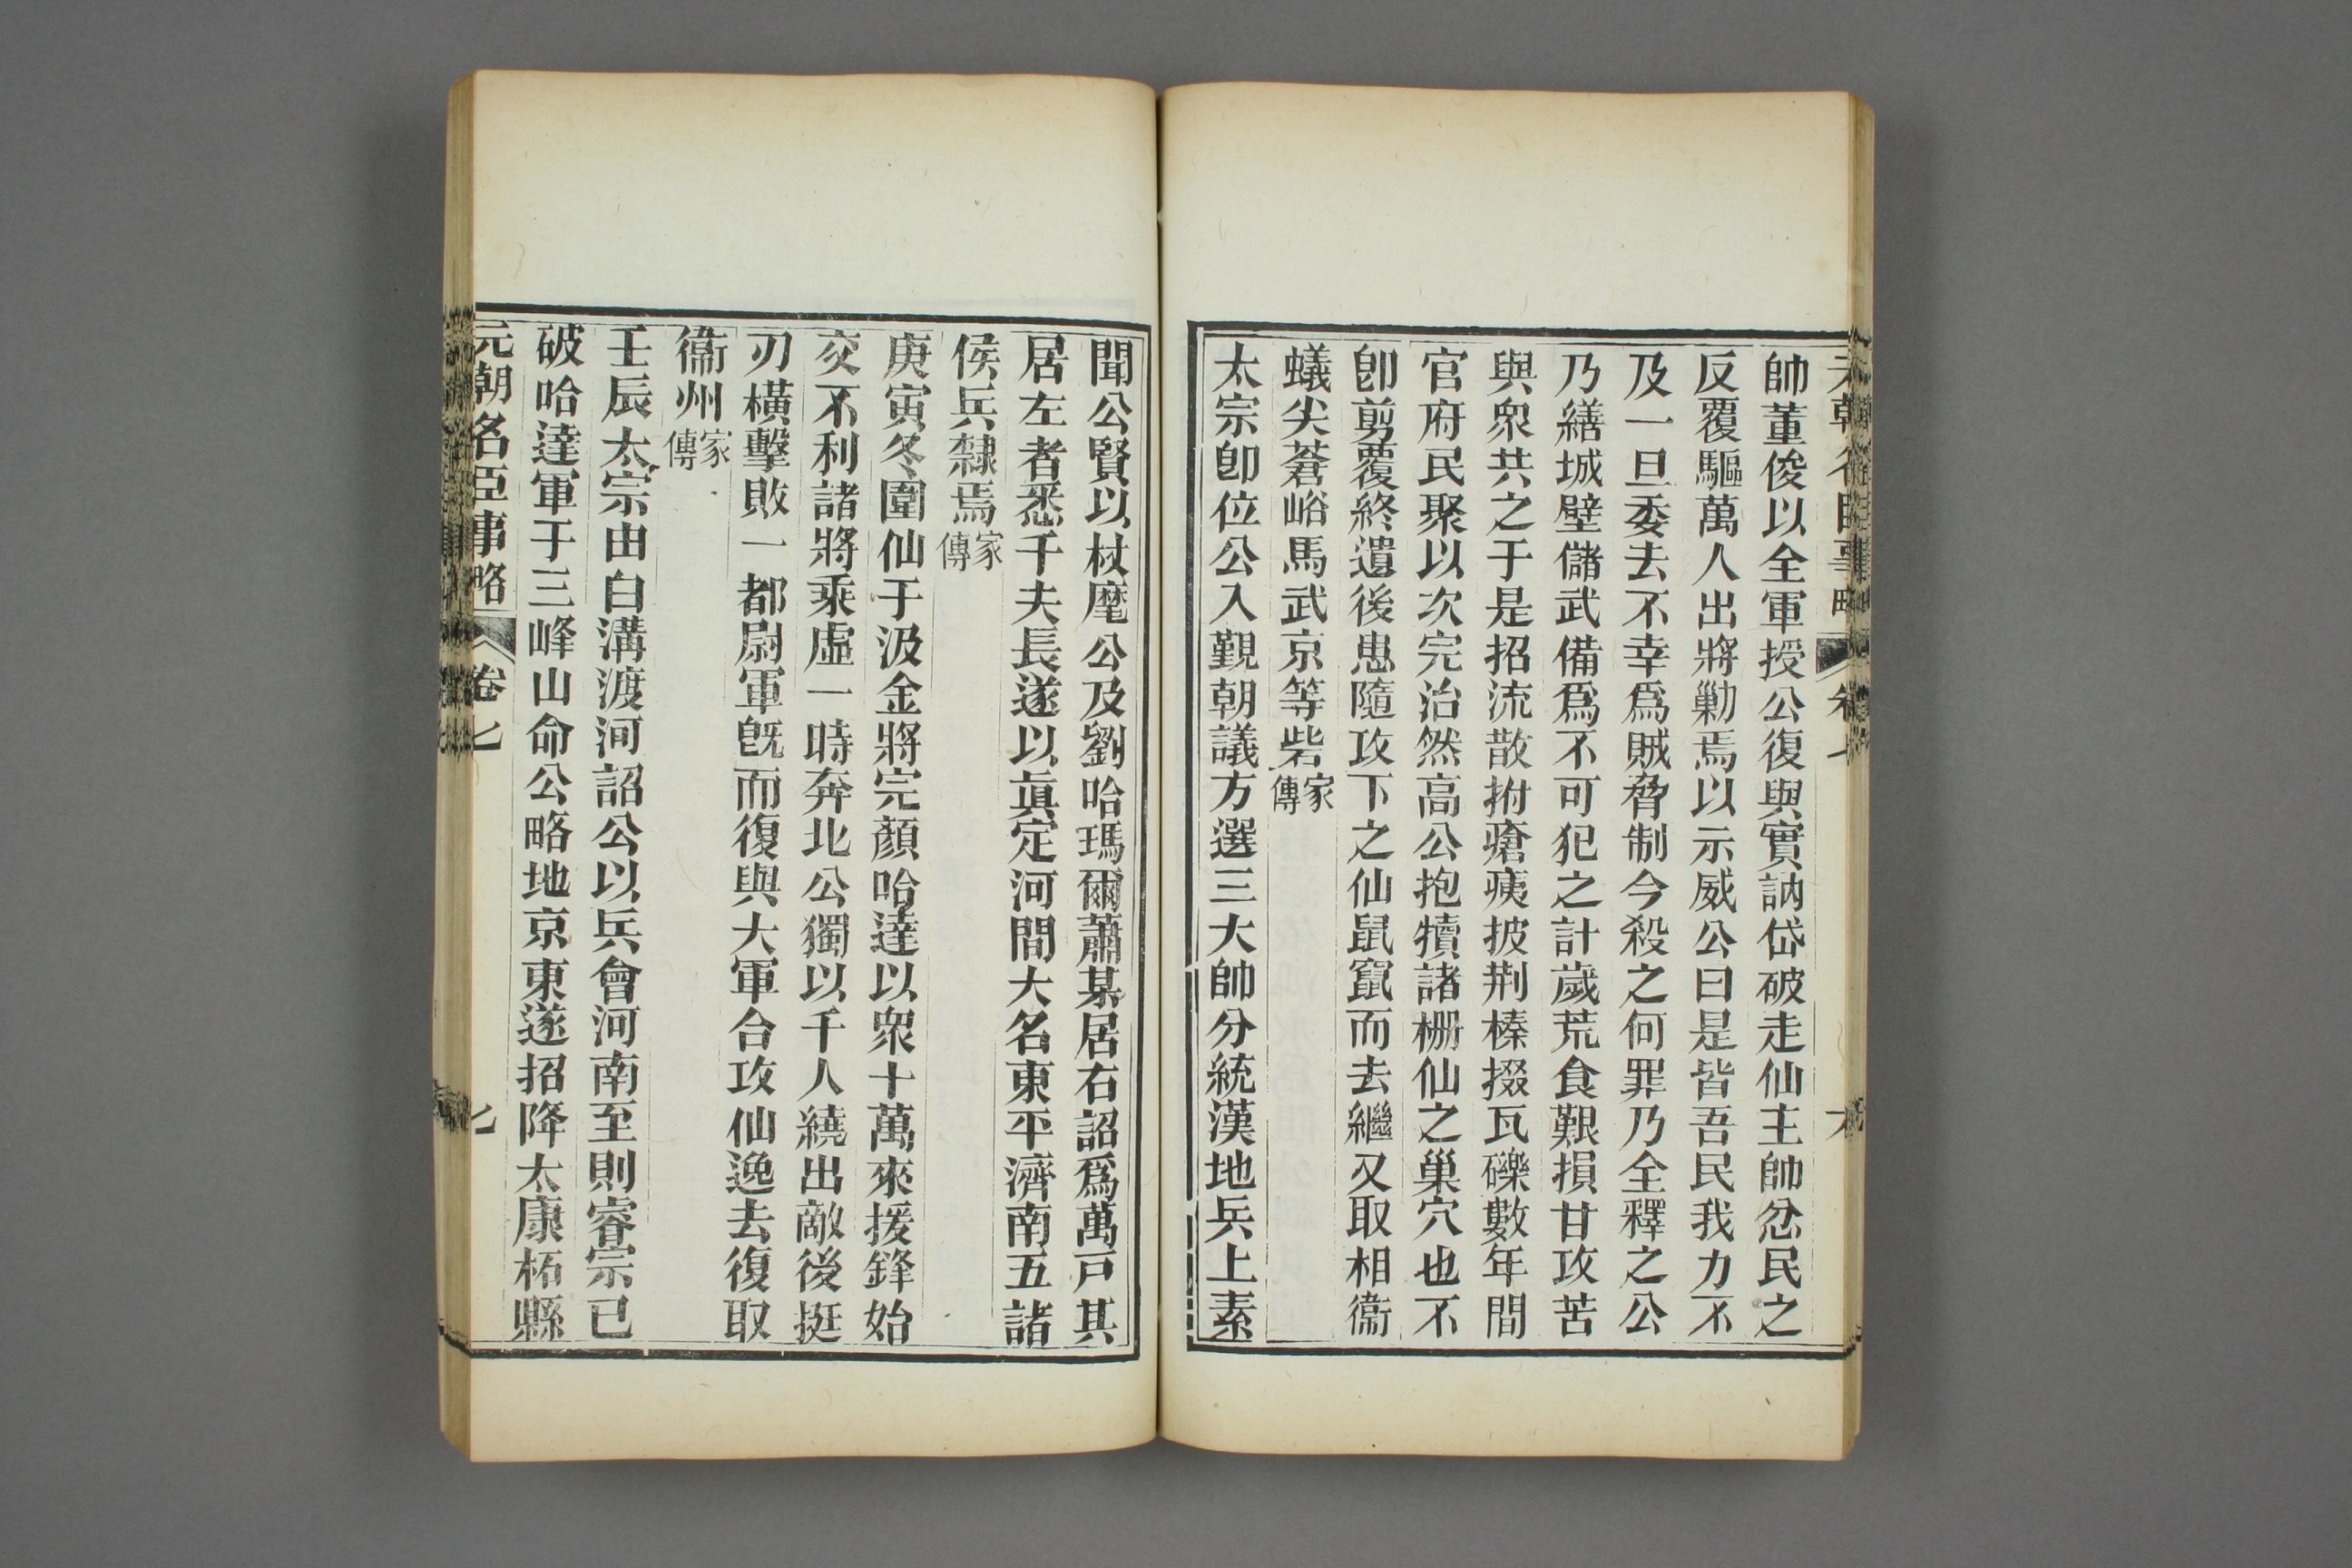 帥董俊以全軍授公復與實訥岱破走仙主帥忿民之
反覆驅萬人出將勦焉以示威公曰是皆吾民我力不
及一旦委去不幸爲賊脅制今殺之何罪乃全釋之公
乃繕城壁儲武備爲不可犯之計歲荒食艱損甘攻苦
與衆共之于是招流散拊瘡痍披荆榛掇瓦礫數年間
官府民聚以次完治然高公抱犢諸柵仙之巢穴也不
卽剪覆終遺後患隨攻下之仙鼠竄而去繼又取相衞
蟻尖蒼峪馬武京等砦家傳
太宗卽位公入覲朝議方選三大帥分統漢地兵上素
聞公賢以杖麾公及劉哈瑪爾蕭某居右詔爲萬戸其
居左者悉千夫長遂以眞定河間大名東平濟南五諸
侯兵隸焉家傳
庚寅冬圍仙于汲金將完顏哈達以衆十萬來援鋒始
交不利諸將乘虛一時奔北公獨以千人繞出敵後挺
刃橫擊敗一都尉軍旣而復與大軍合攻仙逸去復取
衞州家傳
壬辰太宗由白溝渡河詔公以兵會河南至則睿宗已
破哈達軍于三峰山命公略地京東遂招降太康柘縣
元朝名臣事略 卷七 七